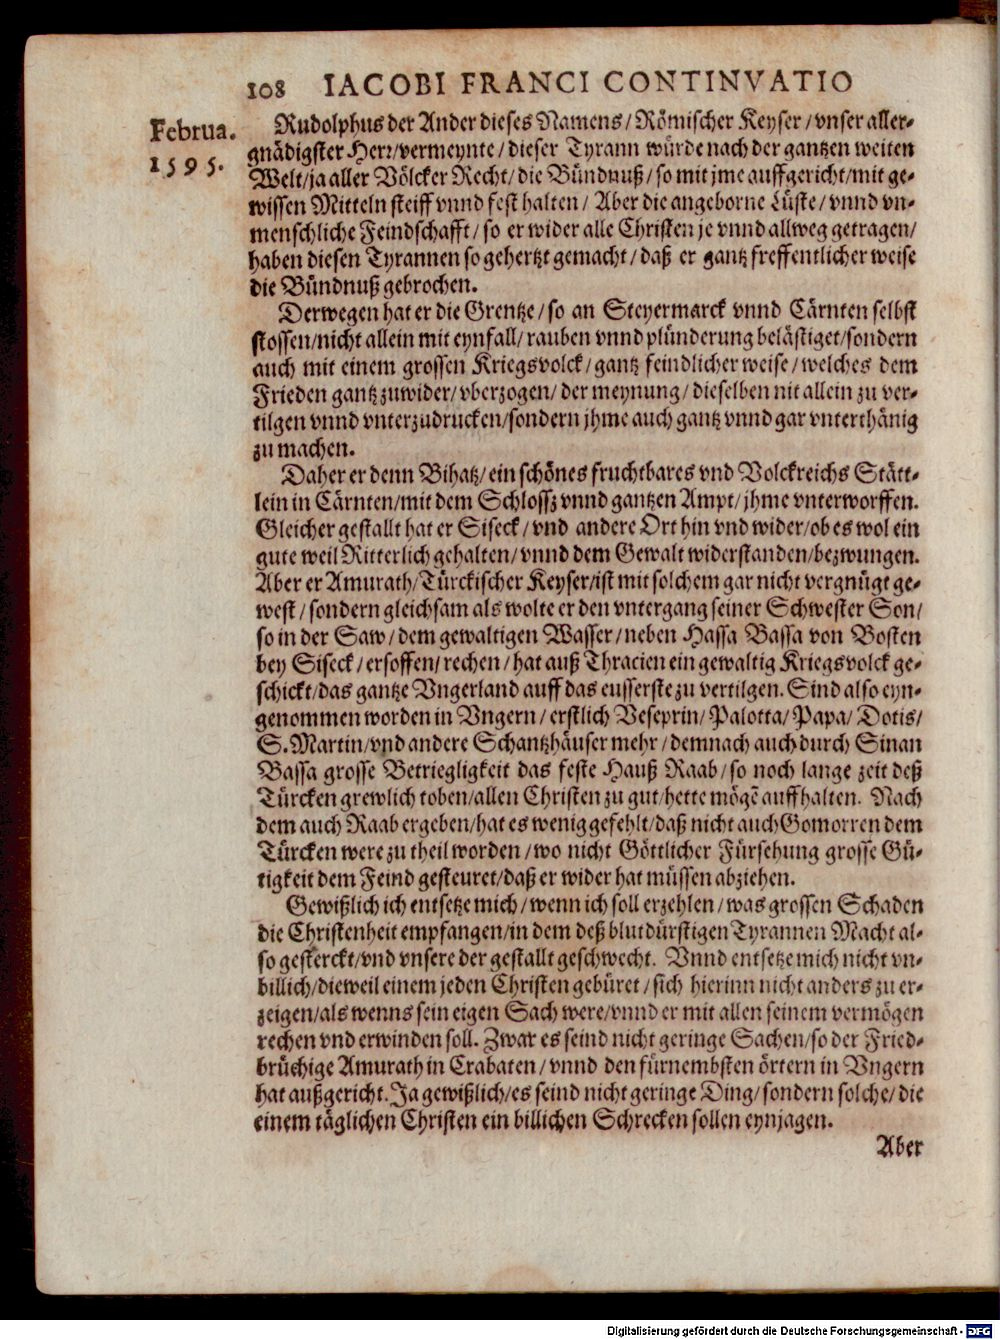 108 IACOBI FRANCI CONTINVATIO
Februa.
1595.
Rudolphus der Ander dieses Namens/ Römischer Keyser/ vnser aller-
gnädigster Herr/ vermeynte/ dieser Tyrann würde nach der gantzen weiten
Welt/ ja aller Völcker Recht/ die Bündnuß/ so mit jme auffgericht/ mit ge-
wissen Mitteln steiff vnnd fest halten/ Aber die angeborne Lüste/ vnnd vn-
menschliche Feindschafft/ so er wider alle Christen je vnnd allweg getragen/
haben diesen Tyrannen so gehertzt gemacht/ daß er gantz freffentlicher weise
die Bündnuß gebrochen.
Derwegen hat er die Grentze/ so an Steyermarck vnnd Cärnten selbst
stossen/ nicht allein mit eynfall/ rauben vnnd plünderung belästiget/ sondern
auch mit einem grossen Kriegsvolck/ gantz feindlicher weise/ welches dem
Frieden gantz zuwider/ vberzogen/ der meynung/ dieselben nit allein zu ver-
tilgen vnnd vnterzudrucken/ sondern jhme auch gantz vnnd gar vnterthänig
zu machen.
Daher er denn Bihatz/ ein schönes fruchtbares vnd Volckreichs Stätt-
lein in Cärnten/ mit dem Schlossz vnnd gantzen Ampt/ jhme vnterworffen.
Gleicher gestallt hat er Siseck/ vnd andere Ort hin vnd wider/ ob es wol ein
gute weil Ritterlich gehalten/ vnnd dem Gewalt widerstanden/ bezwungen.
Aber er Amurath/ Türckischer Keyser/ ist mit solchem gar nicht vergnügt ge-
west/ sondern gleichsam als wolte er den vntergang seiner Schwester Son/
so in der Saw/ dem gewaltigen Wasser/ neben Hassa Bassa von Bosten
bey Siseck/ ersoffen/ rechen/ hat auß Thracien ein gewaltig Kriegsvolck ge-
schickt/ das gantze Vngerland auff das eusserste zu vertilgen. Sind also eyn-
genommen worden in Vngern/ erstlich Veseprin/ Palotta/ Papa/ Dotis/
S. Martin/ vnd andere Schantzhäuser mehr/ demnach auch durch Sinan
Bassa grosse Betriegligkeit das feste Hauß Raab/ so noch lange zeit deß
Türcken grewlich toben/ allen Christen zu gut/ hette mögẽ auffhalten. Nach
dem auch Raab ergeben/ hat es wenig gefehlt/ daß nicht auch Gomorren dem
Türcken were zu theil worden/ wo nicht Göttlicher Fürsehung grosse Gü-
tigkeit dem Feind gesteuret/ daß er wider hat müssen abziehen.
Gewißlich ich entsetze mich/ wenn ich soll erzehlen/ was grossen Schaden
die Christenheit empfangen/ in dem deß blutdürstigen Tyrannen Macht al-
so gesterckt/ vnd vnsere der gestallt geschwecht. Vnnd entsetze mich nicht vn-
billich/ dieweil einem jeden Christen gebüret/ sich hierinn nicht anders zu er-
zeigen/ als wenns sein eigen Sach were/ vnnd er mit allen seinem vermögen
rechen vnd erwinden soll. Zwar es seind nicht geringe Sachen/ so der Fried-
brüchige Amurath in Crabaten/ vnnd den fürnembsten örtern in Vngern
hat außgericht. Ja gewißlich/ es seind nicht geringe Ding/ sondern solche/ die
einem täglichen Christen ein billichen Schrecken sollen eynjagen.
Aber
Digitalisierung gefördert durch die Deutsche Forschungsgemeinschaft - DFG